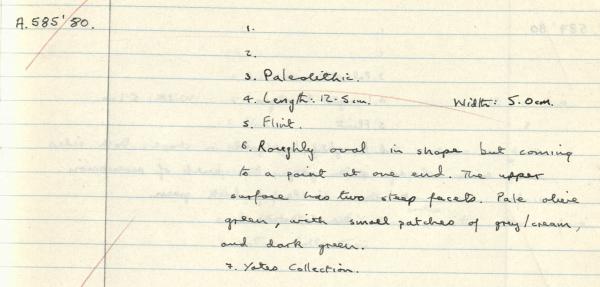 A.585'80.
1.
2.
3. Paleolithic.
4. Length: 12.5cm. Width: 5.0cm.
5. Flint.
6. Roughly oval in shape but coming
to a point at one end. The upper
surface has two steep facets. Pale olive
green, with small patches of grey/cream,
and dark green.
7. Yates Collection.